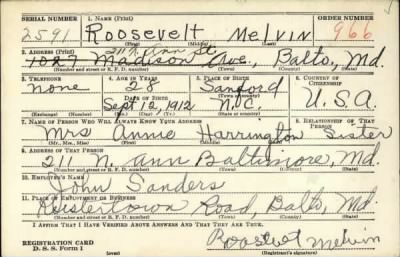 SERIAL NUMBER 1. NAME (Print) ORDER NUMBER
2591 Roosevelt Melvin 966
(First) (Middle) (Last)
2. ADDRESS (Print) 211 N. Ann St.
1027 Madison Ave., Balto, Md.
(Number and street or R. F. D. number) (Town) (County) (State)
3. TELEPHONE 4. AGE IN YEARS 5. PLACE OF BIRTH 6. COUNTRY OF CITIZENSHIP
none 28 Sanford
DATE OF BIRTH
Sept 12, 1912 N.C. U.S.A.
(Exchange) (Number) (Mo.) (Day) (Yr.) (State or country)
7. NAME OF PERSON WHO WILL ALWAYS KNOW YOUR ADDRESS 8. RELATIONSHIP OF THAT PERSON
Mrs Annie Harrington Sister
(Mr., Mrs., Miss) (First) (Middle) (Last)
9. ADDRESS OF THAT PERSON
211 N. ann Baltimore, Md.
(Number and street or R. F. D. number) (Town) (County) (State)
10. EMPLOYER'S NAME
John Sanders
11. PLACE OF EMPLOYMENT OR BUSINESS
Reistertown Road, Balto, Md.
(Number and street or R. F. D. number) (Town) (County) (State)
I AFFIRM THAT I HAVE VERIFIED ABOVE ANSWERS AND THAT THEY ARE TRUE.
REGISTRATION CARD
D. S. S. Form 1
Roosevelt Melvin
(Registrant's signature)